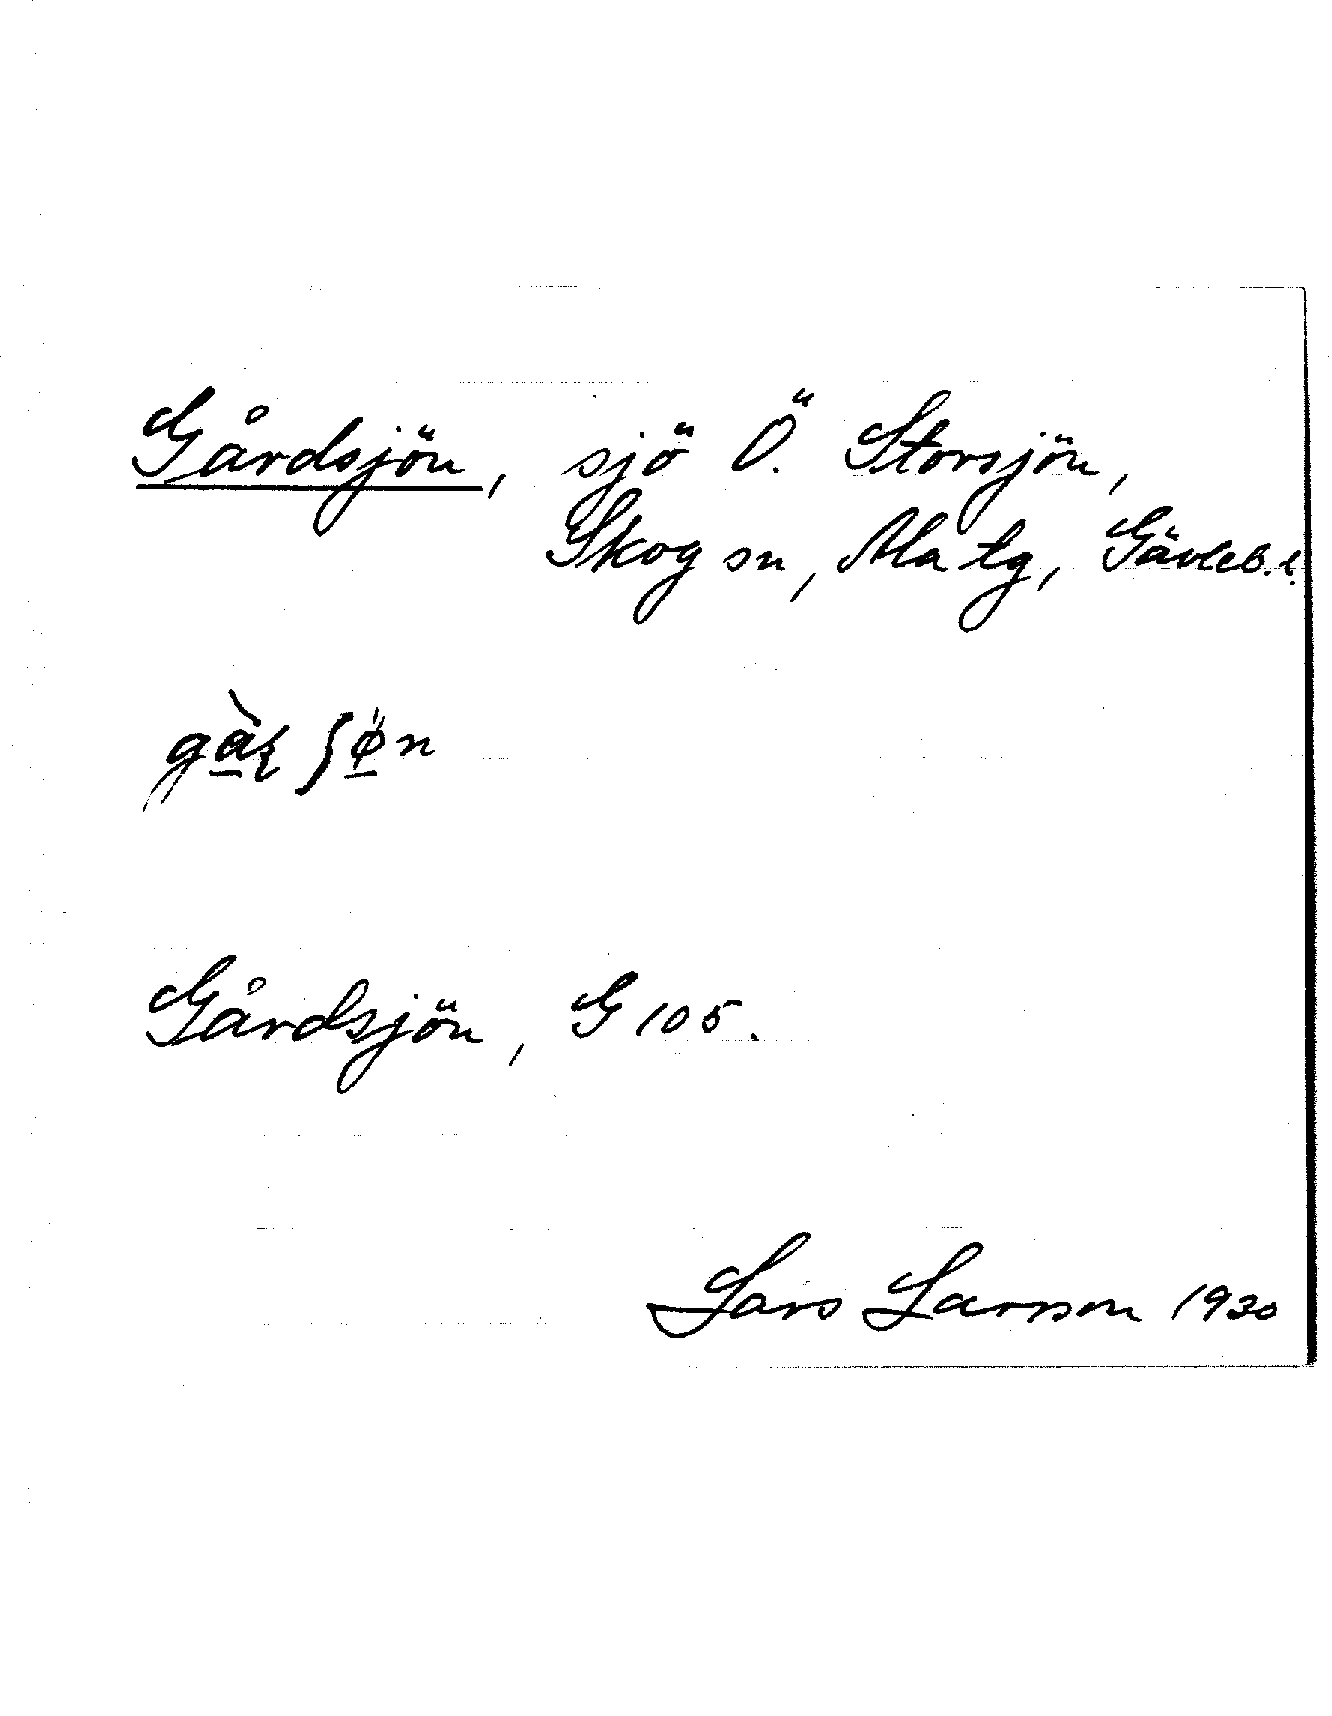 Gårdsjön, sjö Ö. Storsjön,
Skog sn, Ala tg, Gävleb. l.
Gårdsjön, G 105.
Lars Larsson 1930